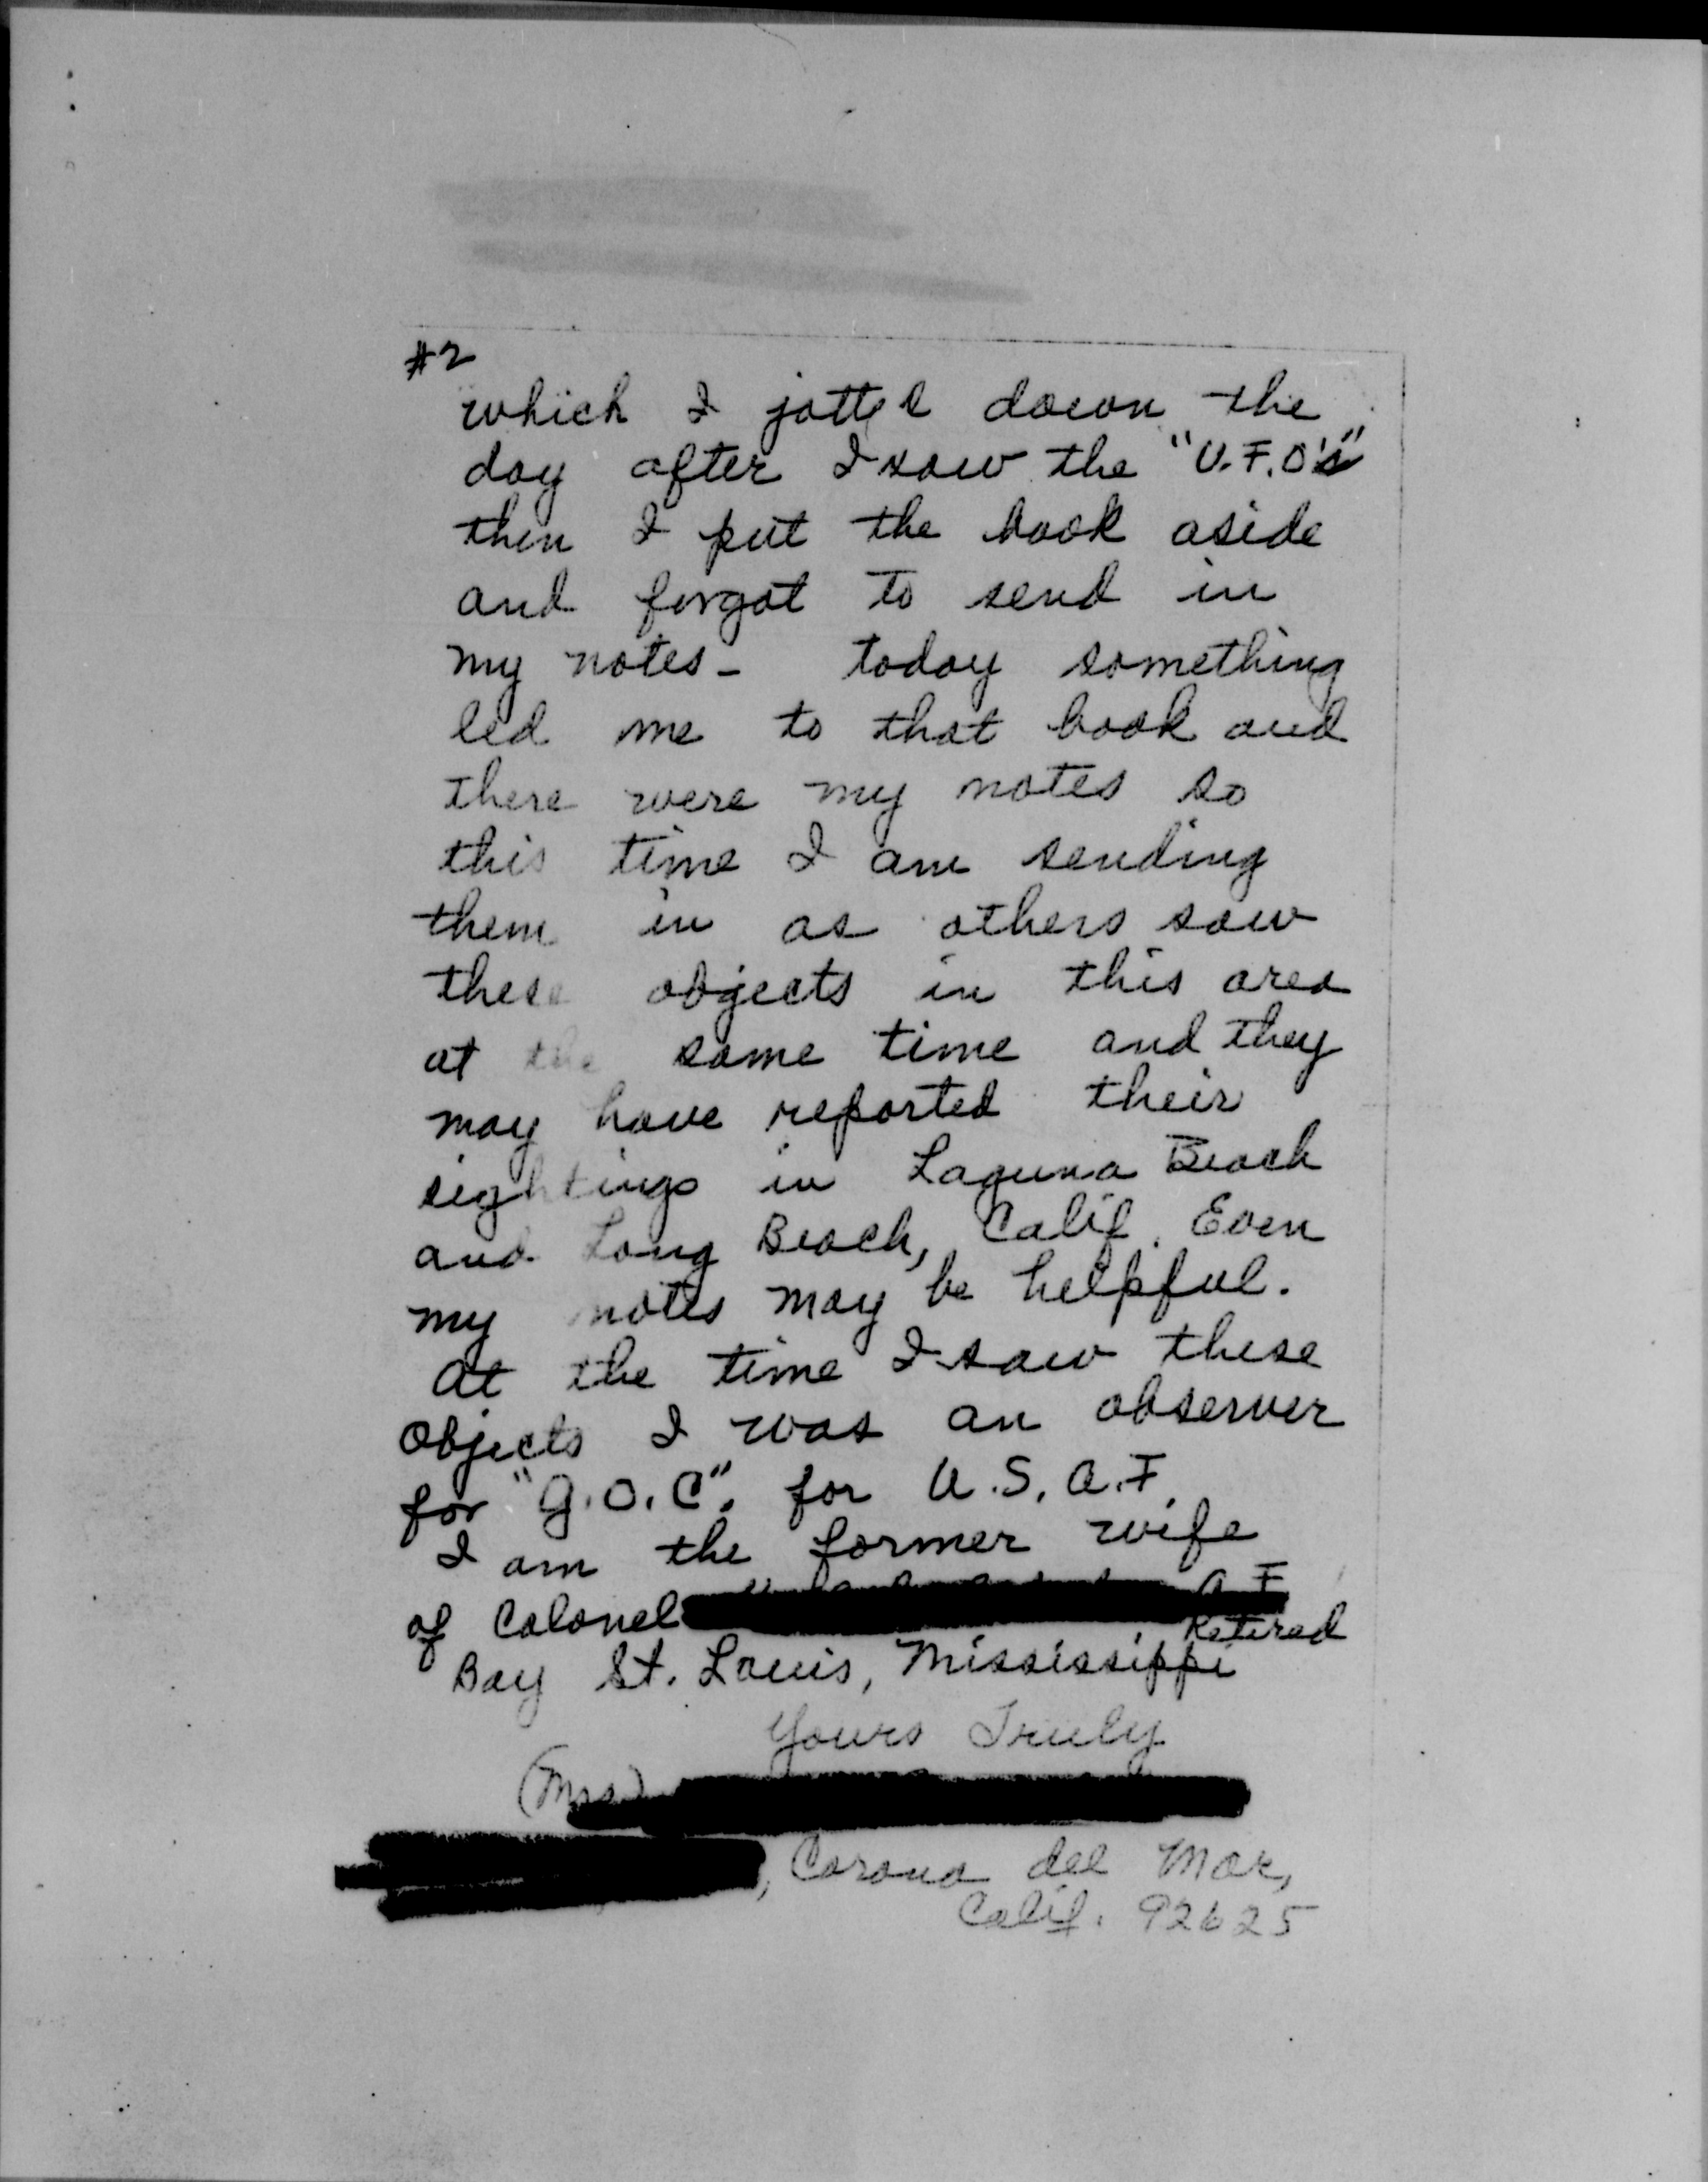 #2
which I jotted down the
day after I saw the "U.F.O's"
then I put the book aside
and forgot to send in
my notes - today something
led me to that book and
there were my notes so
this time I am sending
them in as others saw
these objects in this area
at the same time and they
may have reported their
sightings in Laguna Beach
and Long Beach, Calif. Even
my notes may be helpful.
At the time I saw these
objects I was an observer
for "G.O.C". for U.S.A.F.
I am the former wife
of Colonel A F
Retired
Bay St. Louis, Mississippi
Yours Truly
(Mrs)
, Corona del Mar,
Calif. 92625